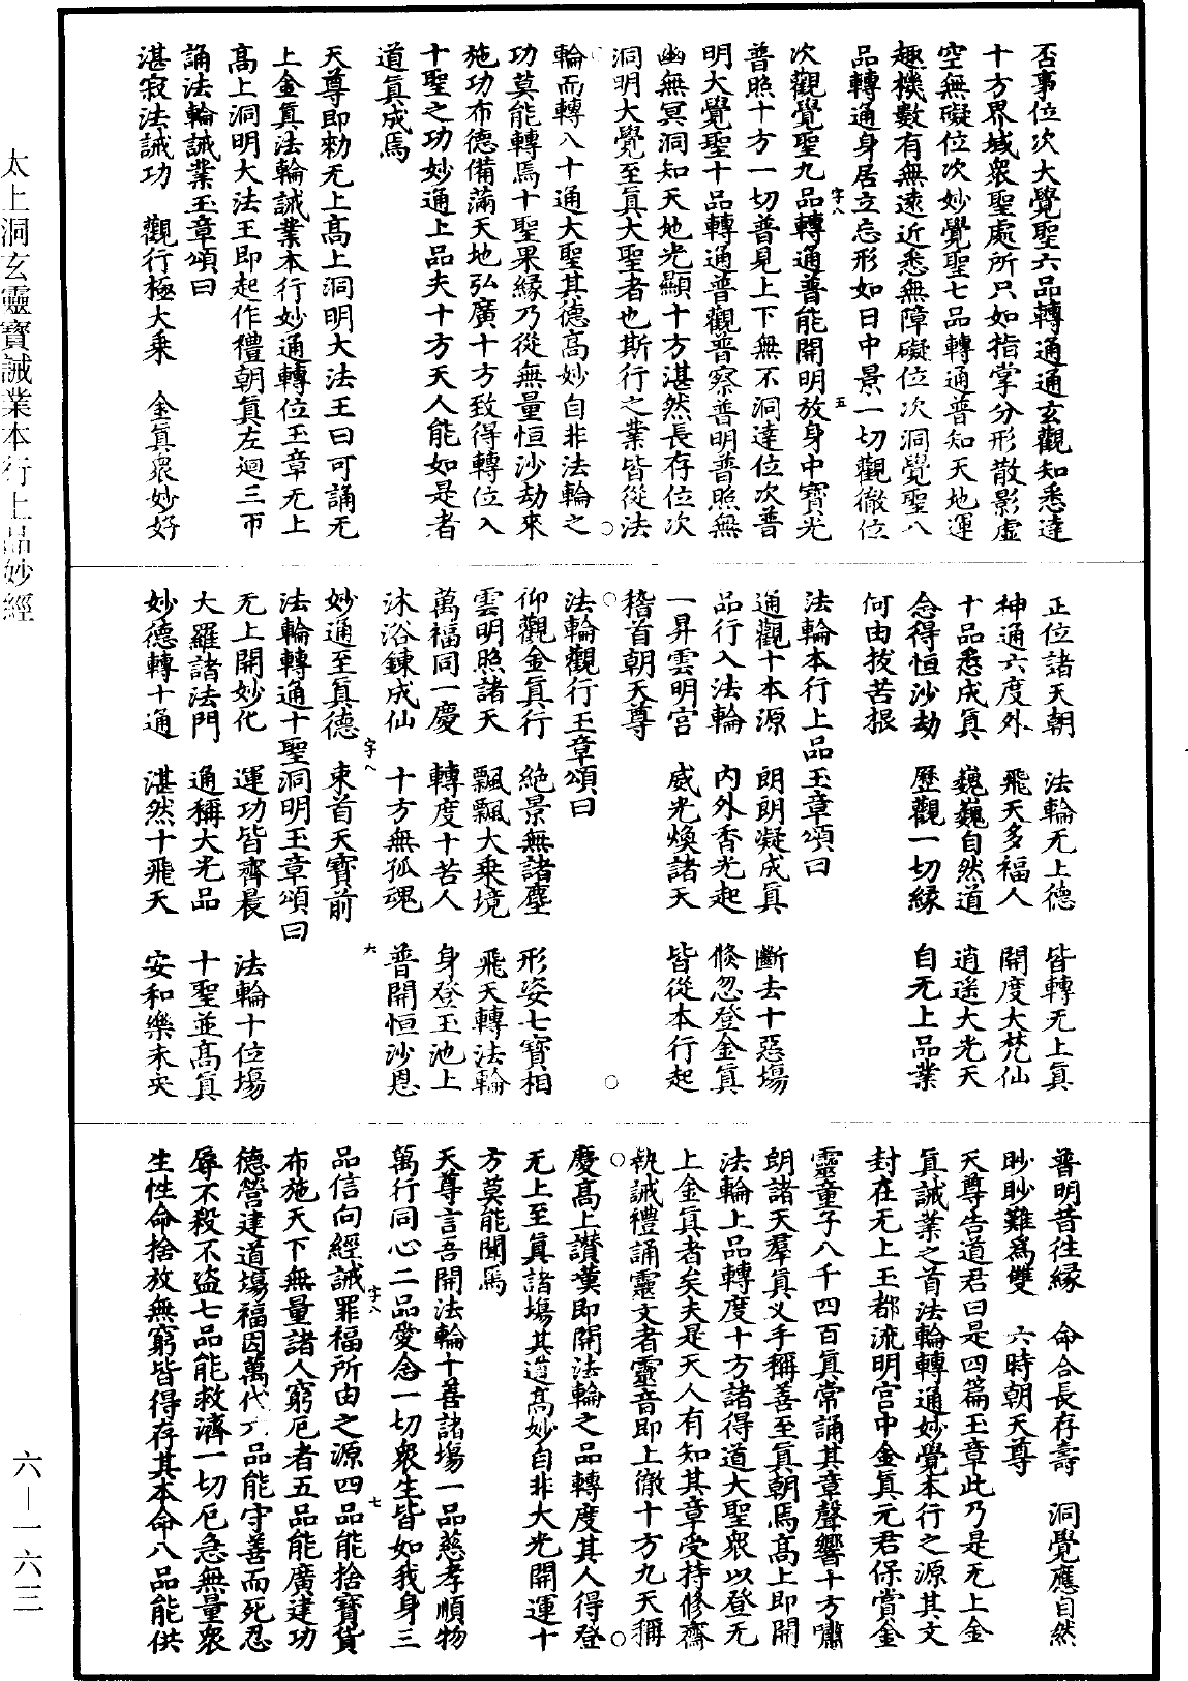 否事位次大覺聖六品轉通通玄觀知悉達
十方界域衆聖處所只如指掌分形散影虛
空無礙位次妙覺聖七品轉通普知天地運
趣機數有無遠近悉無障礙位次洞覺聖八
品轉通身居立忘形如日中景一切觀徹位
字八
五
次觀覺聖九品轉通普能開明放身中寶光
普照十方一切普見上下無不洞達位次普
明大覺聖十品轉通普觀普察普明普照無
幽無冥洞知天地光顯十方湛然長存位次
洞明大覺至眞大聖者也斯行之業皆從法
輪而轉入十通大聖其德高妙自非法輪之
功莫能轉焉十聖果緣乃從無量恒沙劫來
施功布德備滿天地弘廣十方致得轉位入
十聖之功妙通上品夫十方天人能如是者
道眞成焉
天尊即勑无上高上洞明大法王曰可誦无
上金眞法輪誡業本行妙通轉位玉章无上
高上洞明大法王即起作禮朝眞左迴三帀
誦法輪誡業玉章頌曰
湛寂法誡功　觀行極大乘　金眞衆妙好
正位諸天朝　法輪无上德　皆轉无上眞
神通六度外　飛天多福人　開度大梵仙
十品悉成眞　巍巍自然道　逍遙大光天
念得恒沙劫　歷觀一切緣　自无上品業
何由拔苦根
法輪本行上品玉章頌曰
通觀十本源　朗朗凝成眞　斷去十惡塲
品行入法輪　內外香光起　倏忽登金眞
一昇雲明宮　威光煥諸天　皆從本行起
稽首朝天尊
法輪觀行玉章頌曰
仰觀金眞行　絶景無諸塵　形姿七寶相
雲明照諸天　飄飄大乘境　飛天轉法輪
萬福同一慶　轉度十苦人　身登玉池上
沐浴鍊成仙　十方無孤魂　普開恒沙恩
字八
六
妙通至眞德　束首天寶前
法輪轉通十聖洞明玉章頌曰
无上開妙化　運功皆齊晨　法輪十位塲
大羅諸法門　通稱大光品　十聖並高眞
妙德轉十通　湛然十飛天　安和樂未央
普明昔往緣　命合長存壽　洞覺應自然
眇眇難爲雙　六時朝天尊
天尊告道君曰是四篇玉章此乃是无上金
眞誡業之首法輪轉通妙覺本行之源其文
封在无上玉都流明宮中金眞元君保賞金
靈童子八千四百眞常誦其章聲響十方嘯
朗諸天羣眞义手稱善至眞朝焉高上即開
法輪上品轉度十方諸得道大聖衆以登无
上金眞者矣夫是天人有知其章受持修齋
執誡禮誦靈文者靈音即上徹十方九天稱
慶高上讃嘆即開法輪之品轉度其人得登
无上至眞諸塲其道高妙自非大光開運十
方莫能聞焉
天尊言吾開法輪十善諸塲一品慈孝順物
萬行同心二品愛念一切衆生皆如我身三
字八
七
品信向經誡罪福所由之源四品能捨寶貨
布施天下無量諸人窮厄者五品能廣建功
德營建道塲福因萬代六品能守善而死忍
辱不殺不盜七品能救濟一切厄急無量衆
生性命捨放無窮皆得存其本命八品能供
太上洞玄靈寶誡業本行上品妙經
六—一六三